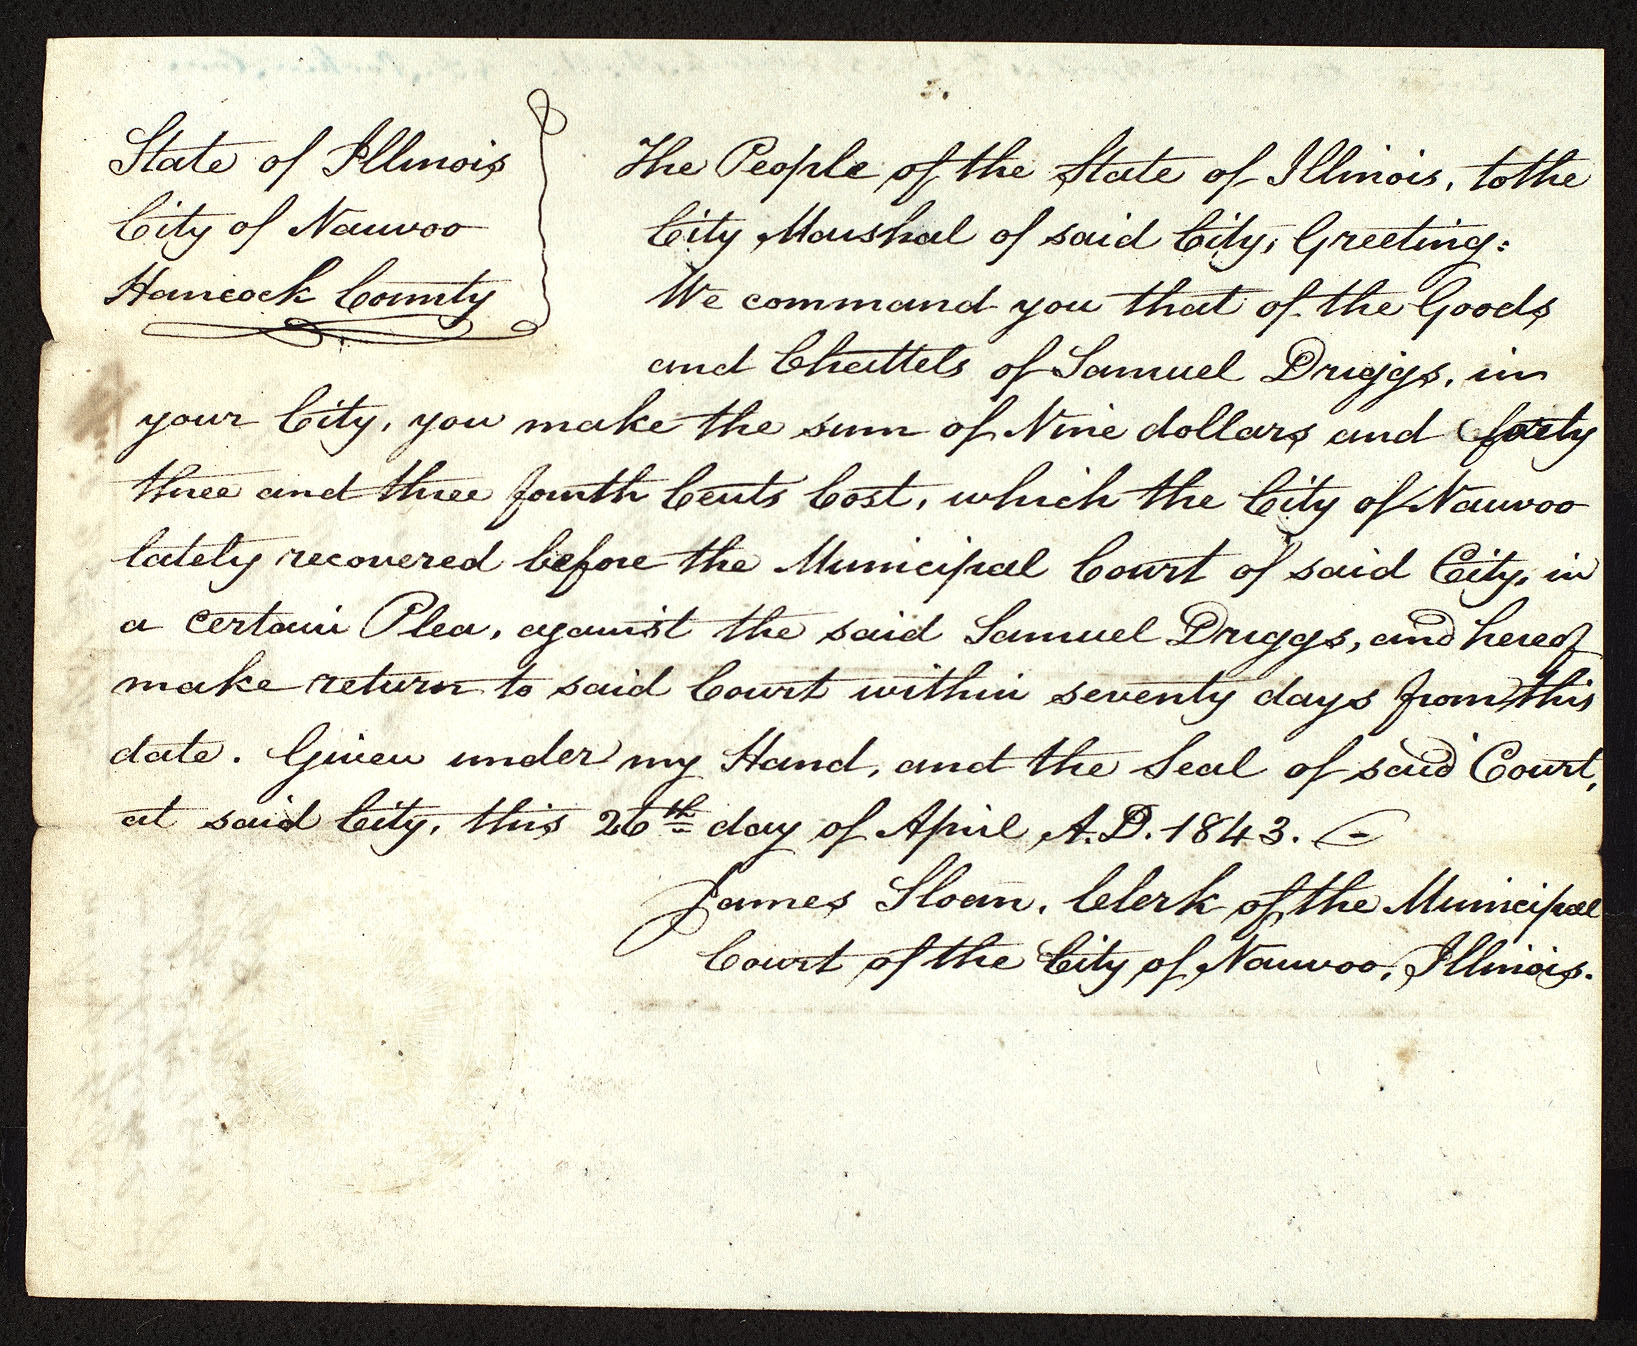 State of Illinois
City of Nauvoo
Hancock County
The People of the State of Illinois, to the
City Marshal of said City; Greeting:
We command you that of the Goods
and Chattels of Samuel Driggs, in
your City, you make the sum of Nine dollars and forty
three and three fourth Cents Cost, which the City of Nauvoo
lately recovered before the Municipal Court of said City, in
a certain Plea, against the said Samuel Driggs, and hereof
make return to said Court within seventy days from this
date. Given under my Hand, and the Seal of said Court,
at said City, this 26th day of April A.D. 1843.
James Sloan, Clerk of the Municipal
Court of the City of Nauvoo, Illinois.